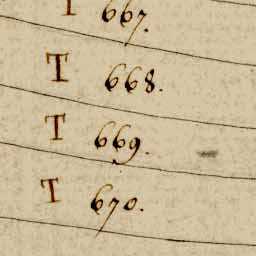 T 667.
T 668.
T 669.
T 670.